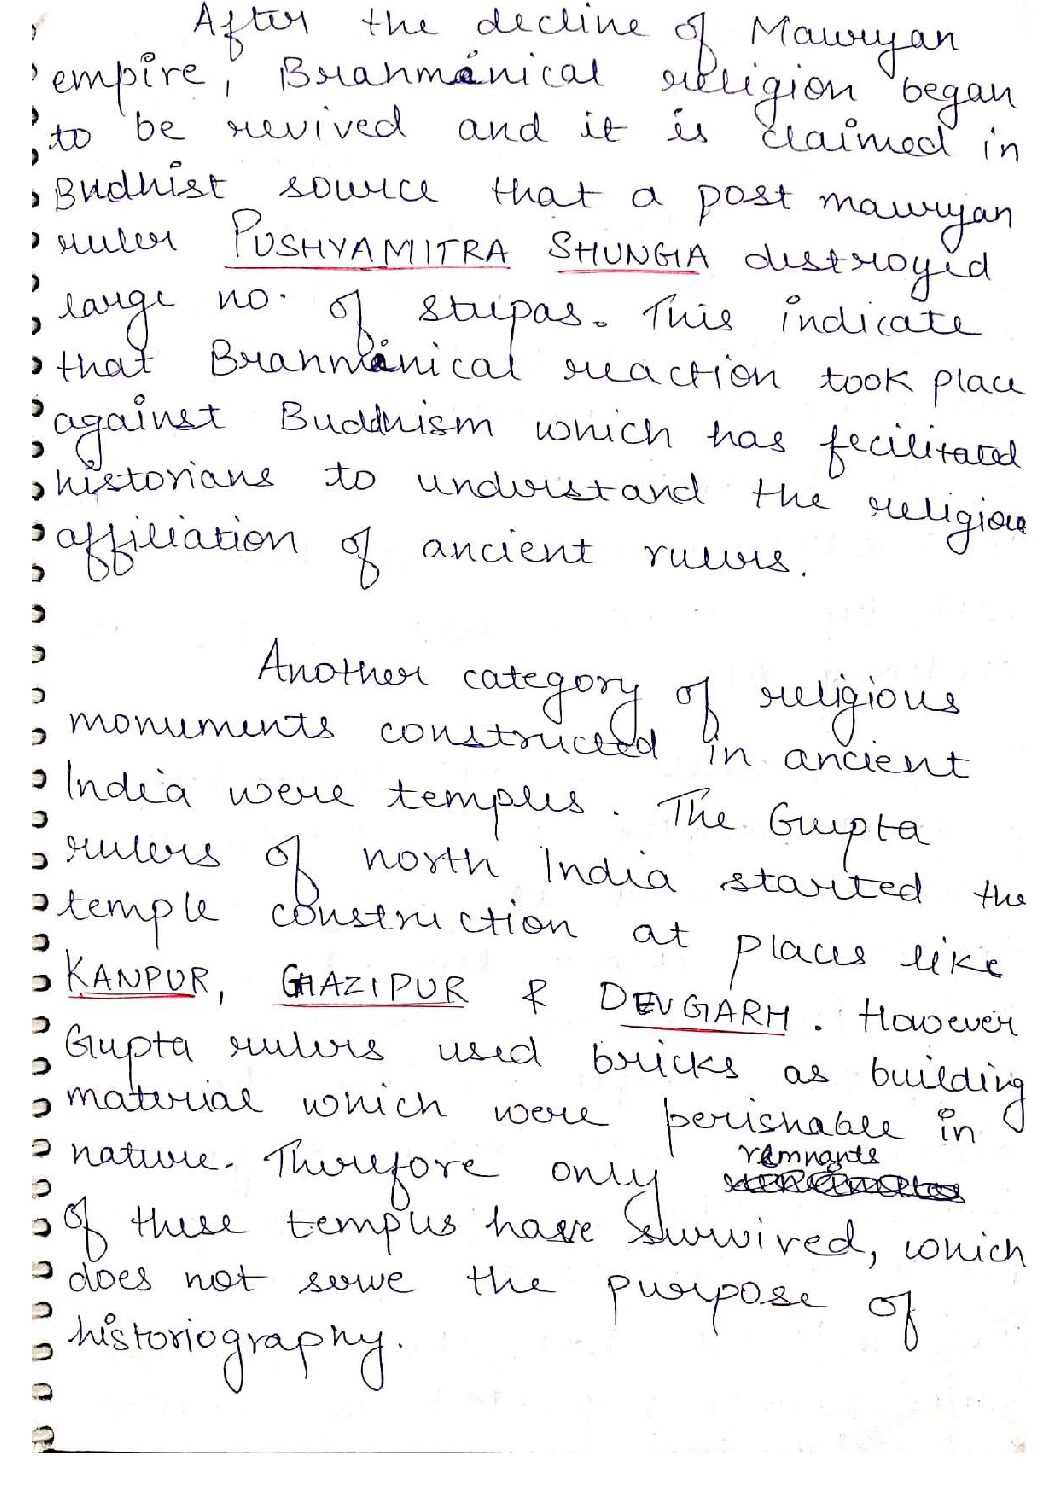 After the decline of Mauryan
empire, Brahmanical religion began
to be revived and it is claimed in
Budhist source that a post mauryan
ruler PUSHYAMITRA SHUNGA destroyed
large no. of stupas. This indicate
that Brahmanical reaction took place
against Buddhism which has fecilitated
historians to understand the religious
affiliation of ancient rulers.
Another category of religious
monuments constructed in ancient
India were temples. The Gupta
rulers of north India started the
temple construction at places like
KANPUR, GHAZIPUR & DEVGARH. However
Gupta rulers used bricks as building
material which were perishable in
nature. Therefore only remnants
of these temples have survived, which
does not serve the purpose of
historiography.